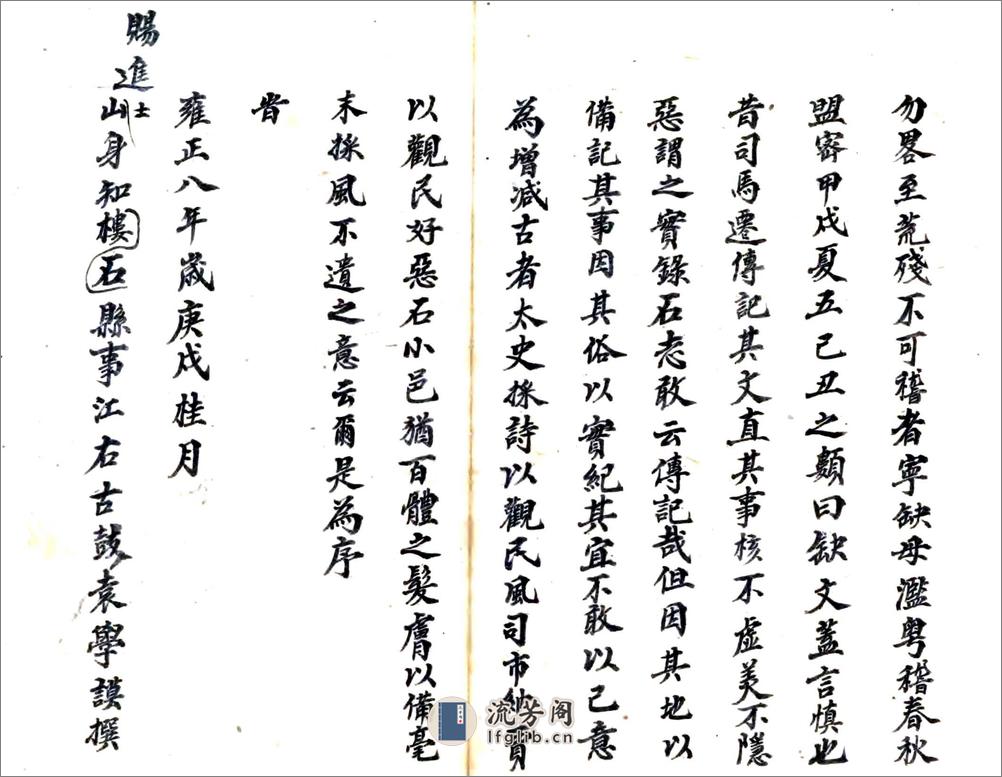 勿畧至荒殘不可稽者寧缺毋濫粤稽春秋
盟密甲戍夏五己丑之類曰缺文蓋言慎也
昔司馬遷傳記其文直其事核不虛美不隱
惡謂之實錄石志敢云傳記哉但因其地以
備記其事因其俗以實紀其宜不敢以己意
為增减古者太史採詩以觀民風司市納賈
以觀民好惡石小邑猶百體之髮膚以備毫
末採風不遺之意云爾是為序
旹
雍正八年歲庚戍桂月
賜進士出身知石樓縣事江右古鼓袁學謨撰
流芳阁
lfglib.cn